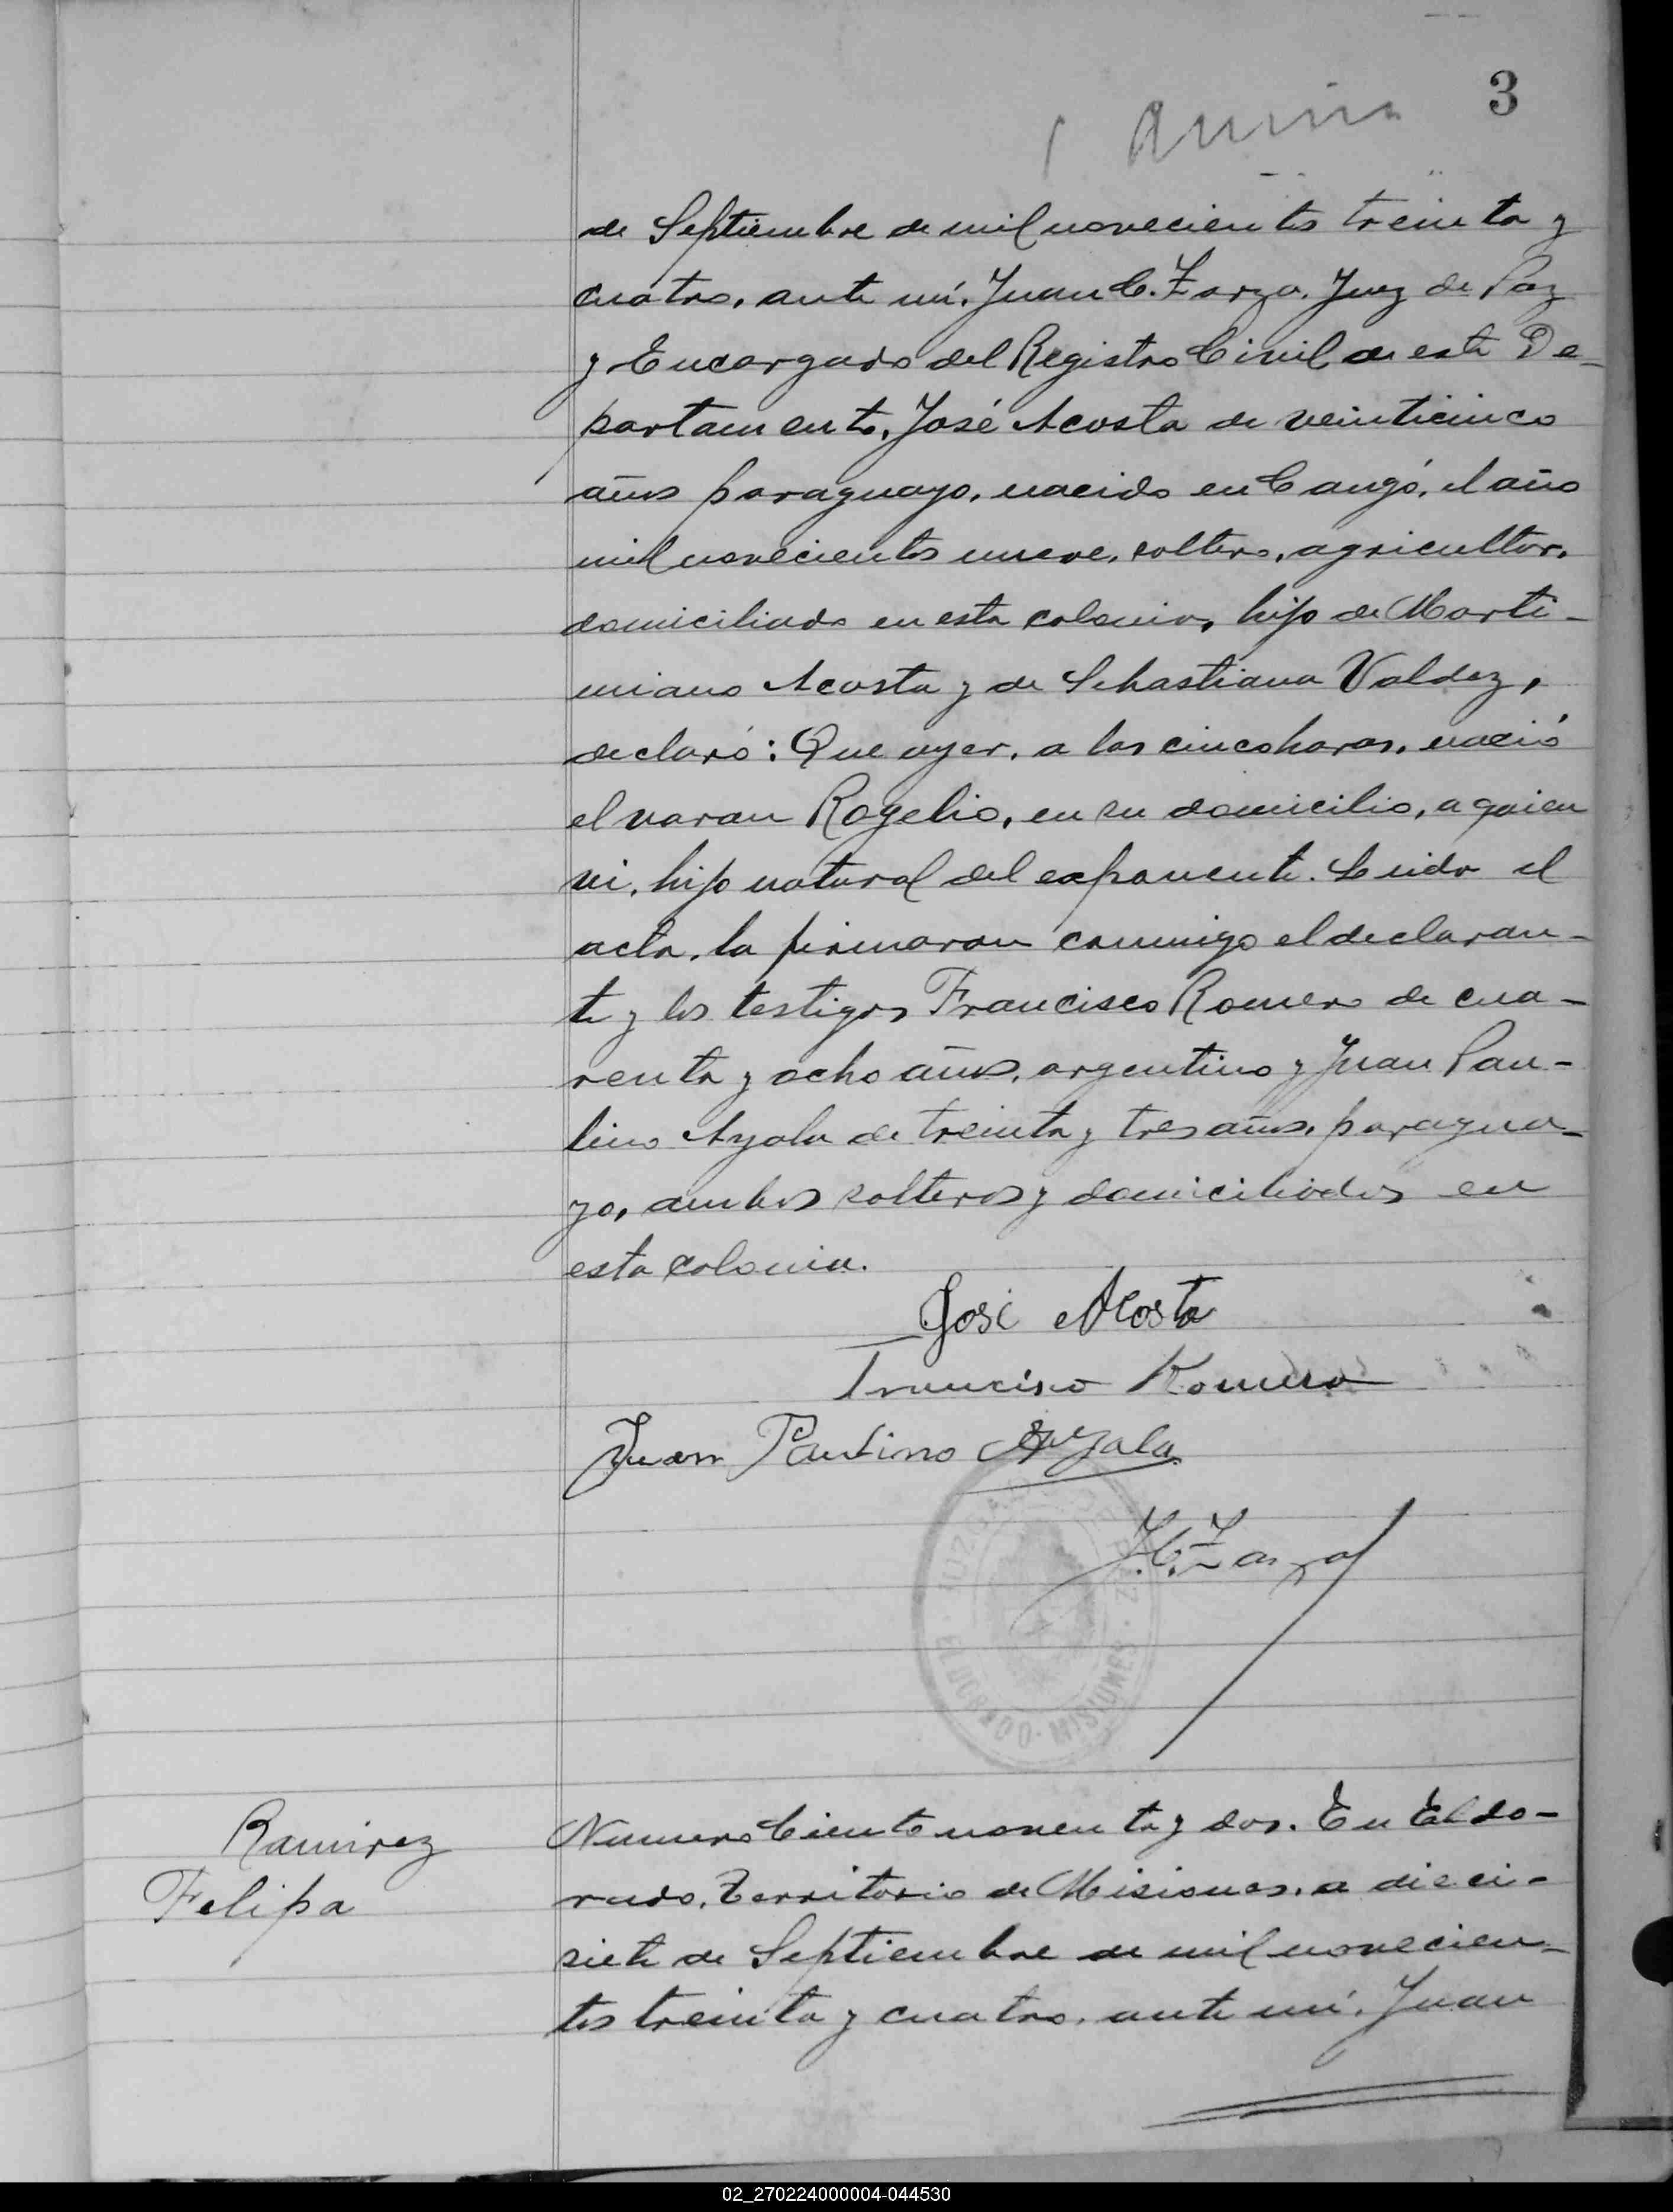 3
de Septiembre de mil novecientos treinta y
cuatro, ante mí, Juan C. Zarza, Juez de Paz
y Encargado del Registro Civil de este De-
partamento, José Acosta de veinticinco
años paraguayo, nacido en Cangó, el año
mil novecientos nueve, soltero, agricultor,
domiciliado en esta colonia, hijo de Marti-
miano Acosta y de Sebastiana Valdez,
declaró: Que ayer, a las cinco horas, nació
el varon Rogelio, en su domicilio, a quien
vi, hijo natural del exponente. Leida el
acta, la firmaron conmigo el declaran-
te y los testigos Francisco Romero de cua-
renta y ocho años, argentino y Juan Pau-
lino Ayala de treinta y tres años, paragua-
yo, ambos solteros y domiciliados en
esta colonia.
José Acosta
Francisco Romero
Juan Paulino Ayala
J.C. Zarza
JUZGADO DE PAZ · ELDORADO · MISIONES ·
Ramirez
Felipa
Numero Ciento noventa y dos. En Eldo-
rado, Territorio de Misiones, a dieci-
siete de Septiembre de mil novecien-
tos treinta y cuatro, ante mí, Juan
02_270224000004-044530